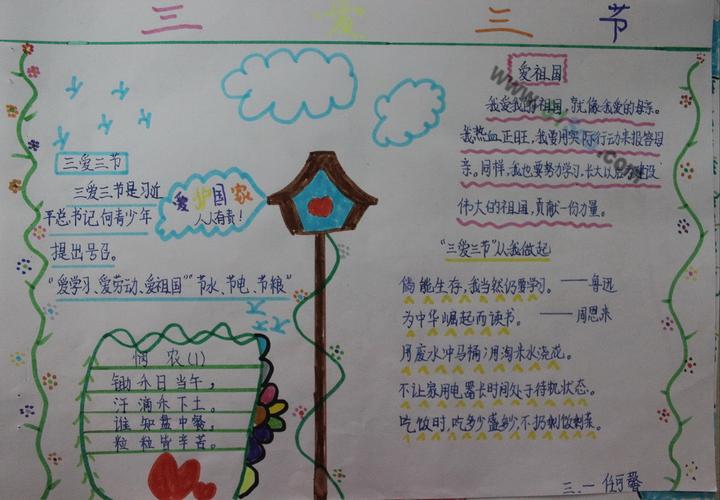 三 爱 三 节
三爱三节
三爱三节是习近
平总书记向青少年
提出号召。
“爱学习、爱劳动、爱祖国”“节水、节电、节粮”
爱护国家
人人有责!
悯 农(1)
锄禾日当午,
汗滴禾下土。
谁知盘中餐,
粒粒皆辛苦。
爱祖国
我爱我的祖国,就像我爱的母亲。
我热血正旺,我要用实际行动来报答母
亲。同样,我也要努力学习,长大以后建设
伟大的祖国,贡献一份力量。
“三爱三节”从我做起
倘能生存,我当然仍要学习。——鲁迅
为中华崛起而读书。——周恩来
用废水冲马桶;用淘米水浇花。
不让家用电器长时间处于待机状态。
吃饭时,吃多少盛多少,不扔剩饭剩菜。
三.一 任可馨